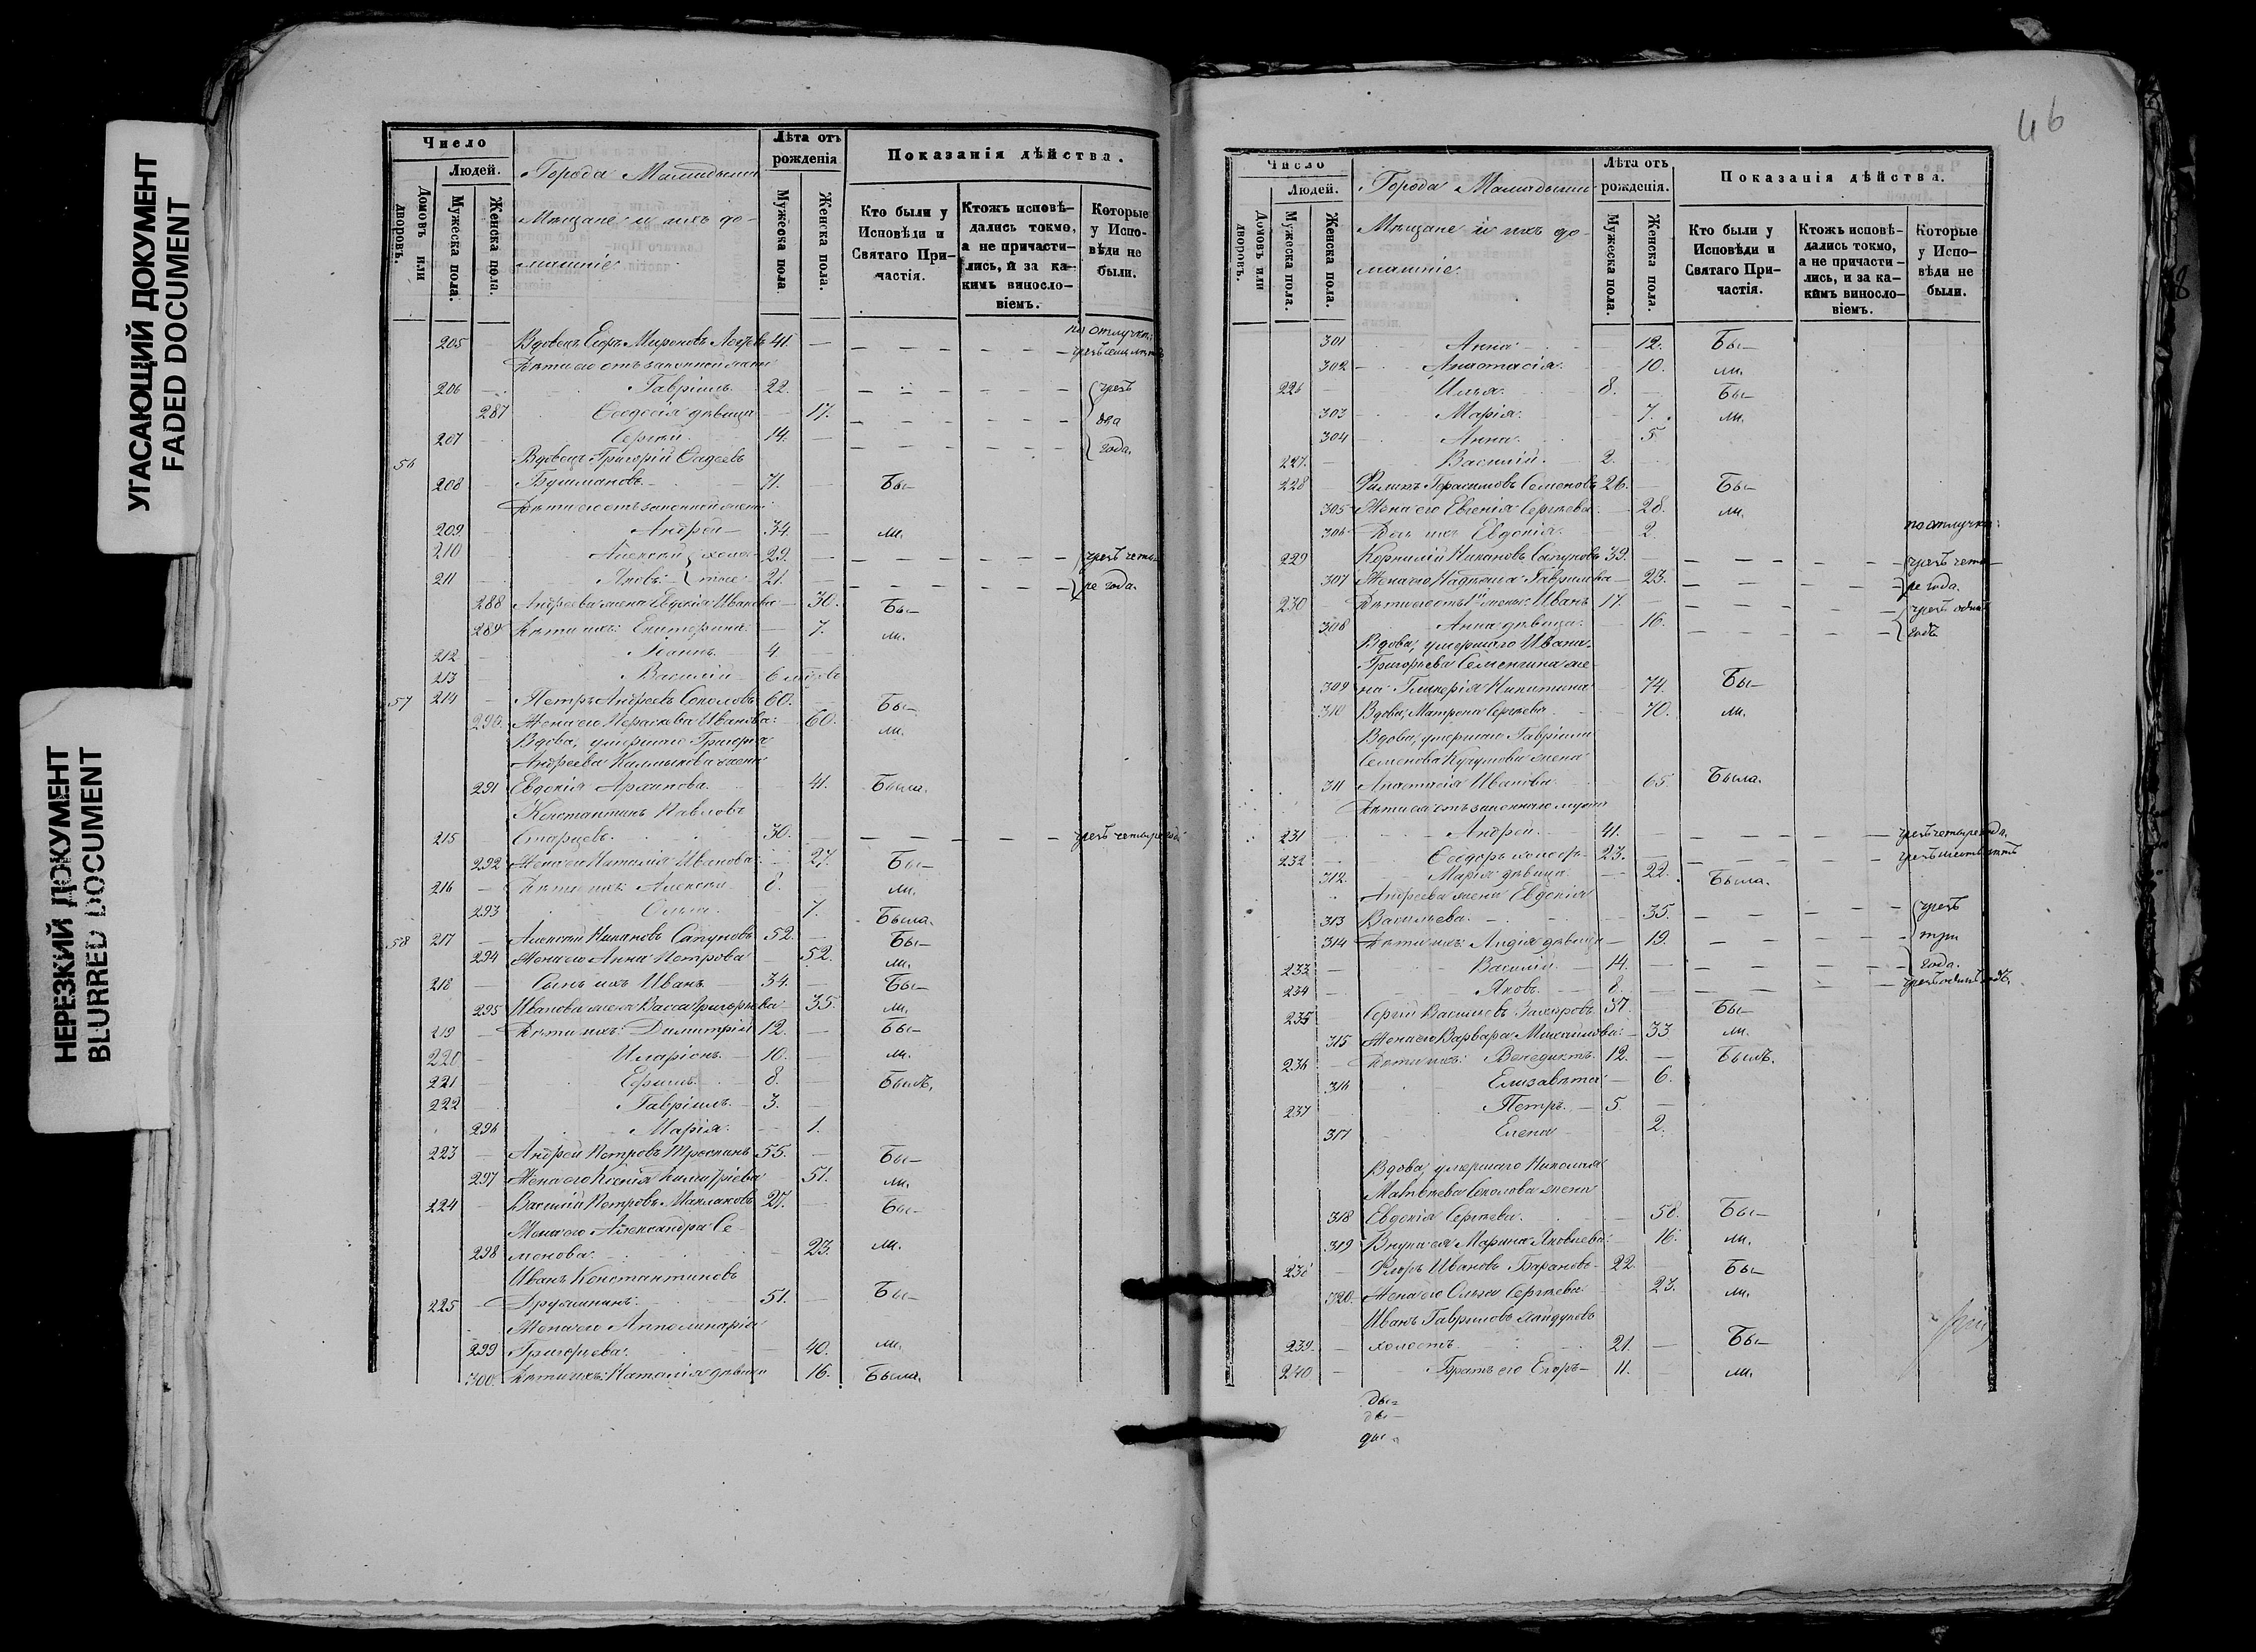 УГАСАЮЩИЙ ДОКУМЕНТ
FADED DOCUMENT
НЕРЕЗКИЙ ДОКУМЕНТ
BLURRED DOCUMENT
Число
Людей.
Домовъ или дворовъ.
Мужеска пола.
Женска пола.
Города Мамадыша
Мѣщане и ихъ до-
машніе
Лѣта отъ рожденія
Мужеска пола.
Женска пола.
Показанія дѣйства.
Кто были у Исповѣди и Святаго При-частія.
Ктожъ исповѣ-дались токмо, а не причасти-лись, и за ка-кимъ винносло-віемъ.
Которые у Испо-вѣди не были.
по отлучкѣ
205 Вдовецъ Егоръ Мироновъ 41.
Дѣти его отъ законной жены
206 Гавріилъ 22. чрезъ
287 Ѳеодосія дѣвица 17. два
207 Сергѣй 14. года.
56 Вдовецъ Григорій Ѳадеевъ
208 Бушмановъ 71. Бы-
Дѣти его отъ законной жены
209 Андрей 34. ли.
210 Алексѣй холо- 29. чрезъ четы-
211 Яковъ стые 21. ре года.
288 Андреева жена Евдокія Иванова 30. Бы-
289 Дѣти ихъ: Екатерина 7. ли.
212 Іоаннъ 4
213 Василій 6
57 214 Петръ Андреевъ Соколовъ 60. Бы-
290 Жена его Параскева Иванова 60. ли.
Вдова, умершаго Григорія
Андреева Калмыкова жена
291 Евдокія Архипова 41. Была.
Константинъ Павловъ
215 Старцевъ 30. чрезъ четыре года
292 Жена его Наталія Иванова 27. Бы-
216 Дѣти ихъ: Алексѣй 8. ли.
293 Ольга 7. Была.
58 217 Алексѣй Никановъ Сапуновъ 52. Бы-
294 Жена его Анна Петрова 52. ли.
218 Сынъ ихъ Иванъ 34. Бы-
295 Иванова жена Васса Григорьева 35. ли.
219 Дѣти ихъ: Димитрій 12. Бы-
220 Иларіонъ 10. ли.
221 Ефимъ 8. Былъ.
222 Гавріилъ 3.
296 Марія 1.
223 Андрей Петровъ 55. Бы-
297 Жена его Ксенія 51. ли.
224 Василій Петровъ Маклаковъ 27. Бы-
Жена его Александра Се-
298 менова 23. ли.
Иванъ Константиновъ
225 Дружининъ 51. Бы-
Жена его Апполинарія
299 Григорьева 40. ли.
300 Дѣти ихъ: Наталія дѣвица 16. Была.
46
Число
Людей.
Домовъ или дворовъ.
Мужеска пола.
Женска пола.
Города Мамадыша
Мѣщане и ихъ до-
машніе
Лѣта отъ рожденія.
Мужеска пола.
Женска пола.
Показанія дѣйства.
Кто были у Исповѣди и Святаго При-частія.
Ктожъ исповѣ-дались токмо, а не причасти-лись, и за ка-кимъ винносло-віемъ.
Которые у Испо-вѣди не были.
301 Анна 12. Бы-
302 Анастасія 10. ли.
226 Илья 8. Бы-
303 Марія 7. ли.
304 Анна 5
227 Василій 2.
228 Филипъ Герасимовъ Семеновъ 26. Бы-
305 Жена его Евгенія Сергѣева 28. ли.
306 Дочь ихъ Евдокія 2. по отлучкѣ:
229 Корнилій Никановъ Сапуновъ 39. чрезъ четы-
307 Жена его Надежда Гаврилова 23. ре года.
230 Дѣти его отъ 1й жены: Иванъ 17. чрезъ одинъ
308 Анна дѣвица 16. годъ
Вдова, умершаго Ивана
Григорьева Семенгина же-
309 на Гликерія Никитина 74. Бы-
310 Вдова, Матрона Сергѣева 70. ли.
Вдова, умершаго Гавріила
Семенова Кулумова жена
311 Анастасія Иванова 65. Была.
Дѣти ея отъ законнаго мужа
231 Андрей 41. чрезъ четыре года.
232 Ѳеодоръ холостъ 23. чрезъ шесть лѣтъ
312 Марія дѣвица 22. Была.
Андреева жена Евдокія
313 Васильева 35. чрезъ
314 Дѣти ихъ: Лидія дѣвица 19. три
233 Василій 14. года.
234 Яковъ 8. чрезъ одинъ годъ.
235 Сергѣй Васильевъ Захаровъ 37. Бы-
315 Жена его Варвара Михайлова 33 ли.
236 Дѣти ихъ: Венедиктъ 12. Былъ.
316 Елизавета 6.
237 Петръ 5
317 Елена 2.
Вдова, умершаго Николая
Матвѣева Соколова жена
318 Евдокія Сергѣева 58. Бы-
319 Внука ея Марина Яковлева 16. ли.
238 Флоръ Ивановъ Барановъ 22. Бы-
320 Жена его Ольга Сергѣева 23. ли.
Иванъ Гавриловъ
239 холостъ 21. Бы-
240 Братъ его Егоръ 11. ли.